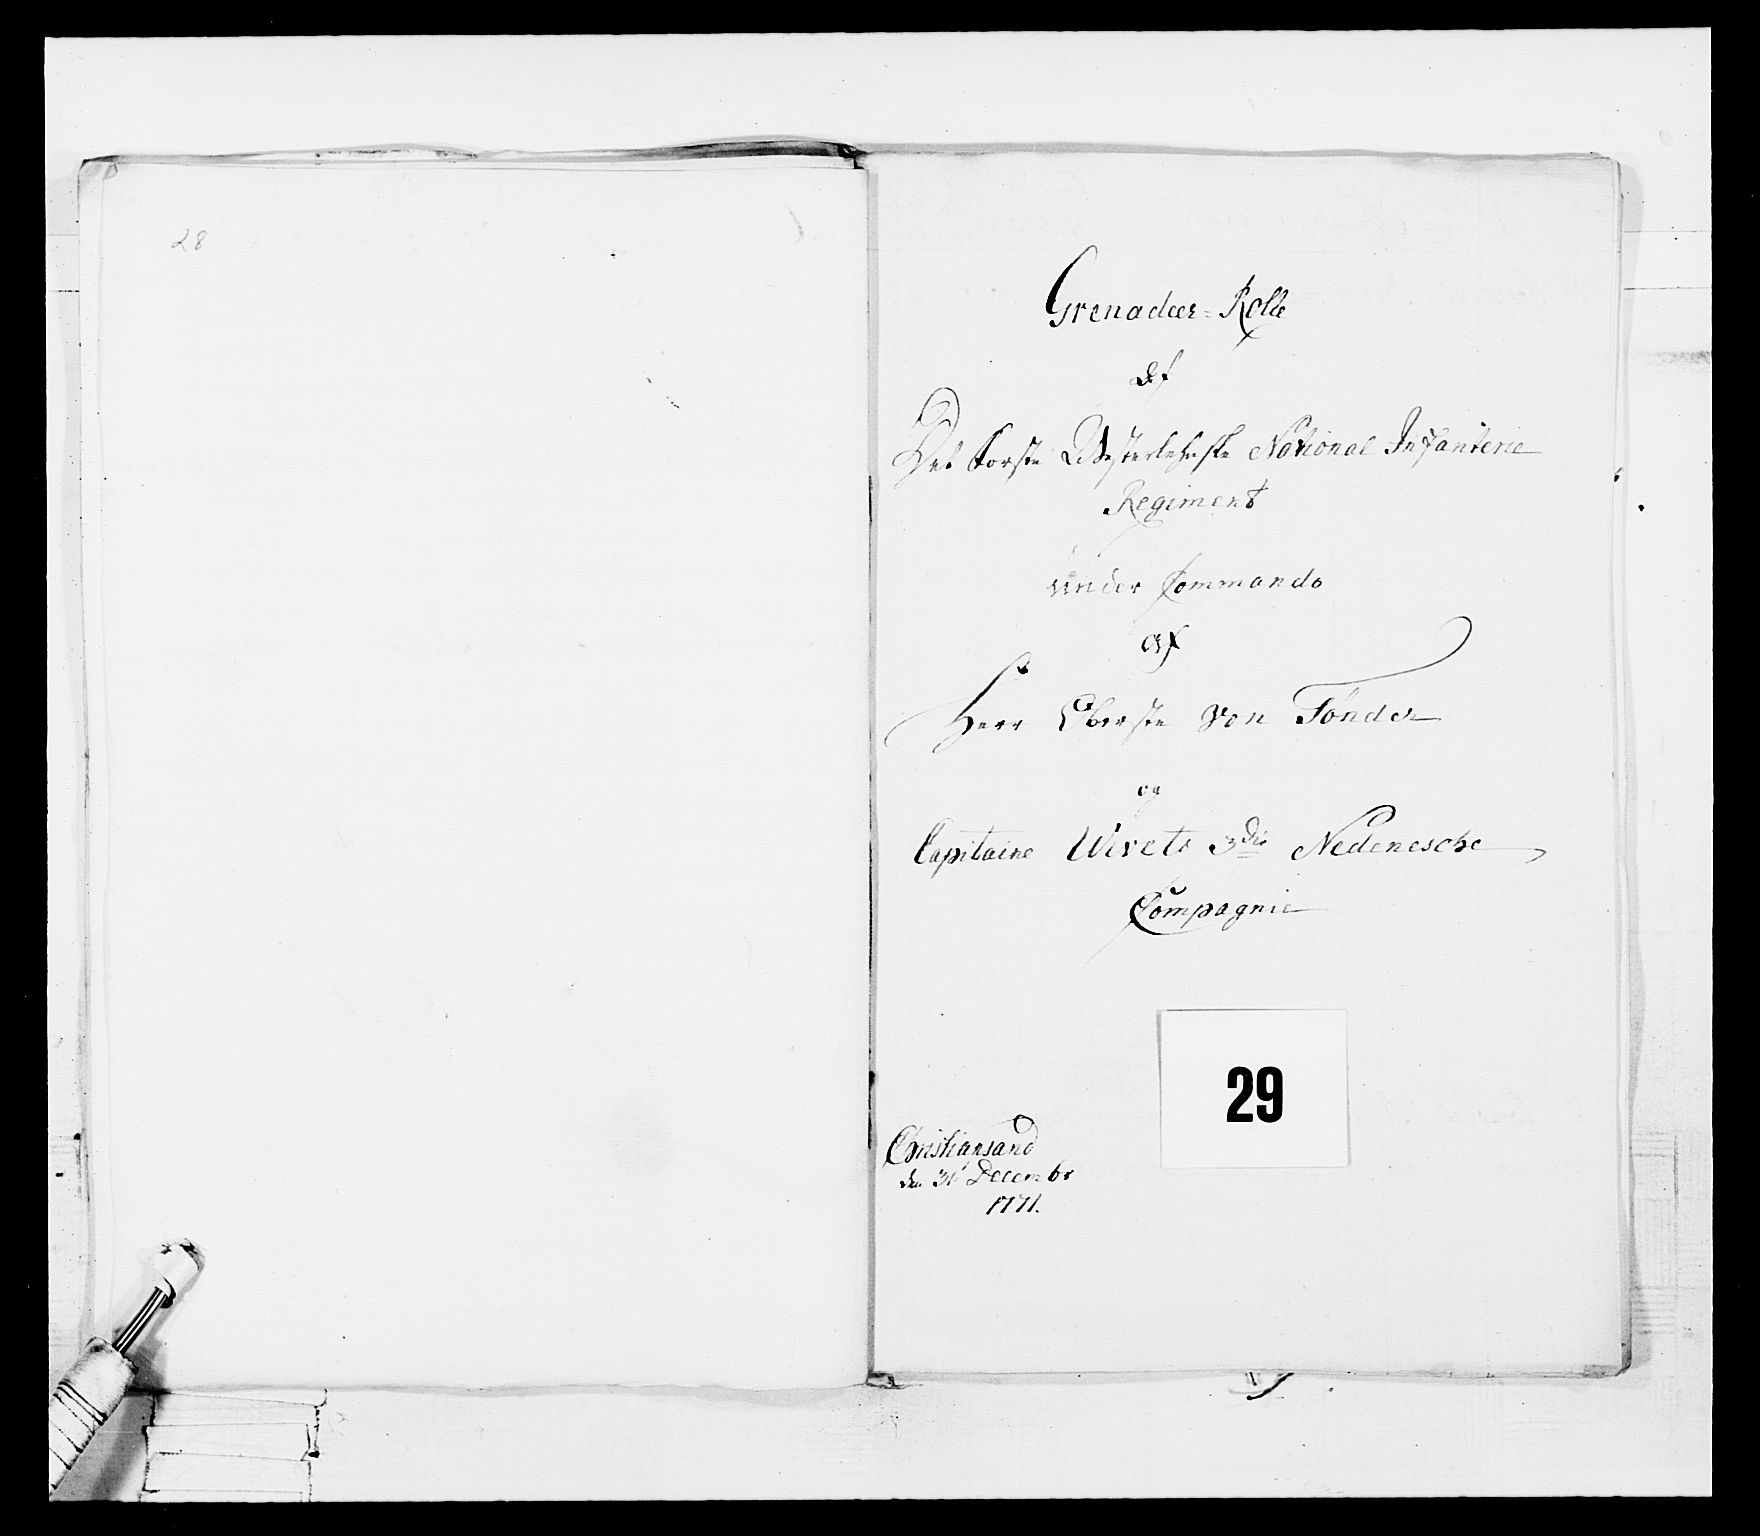 28
Grenadeer-Rolle
Af
Det Første Westerlehnske National Infanterie
Regiment
under Commando
af
Herr Oberste von Tønder
og
Capitaine Wivets 3die Nedenesche
Compagnie
29
Christiansand
den 31t Decembr
1771.